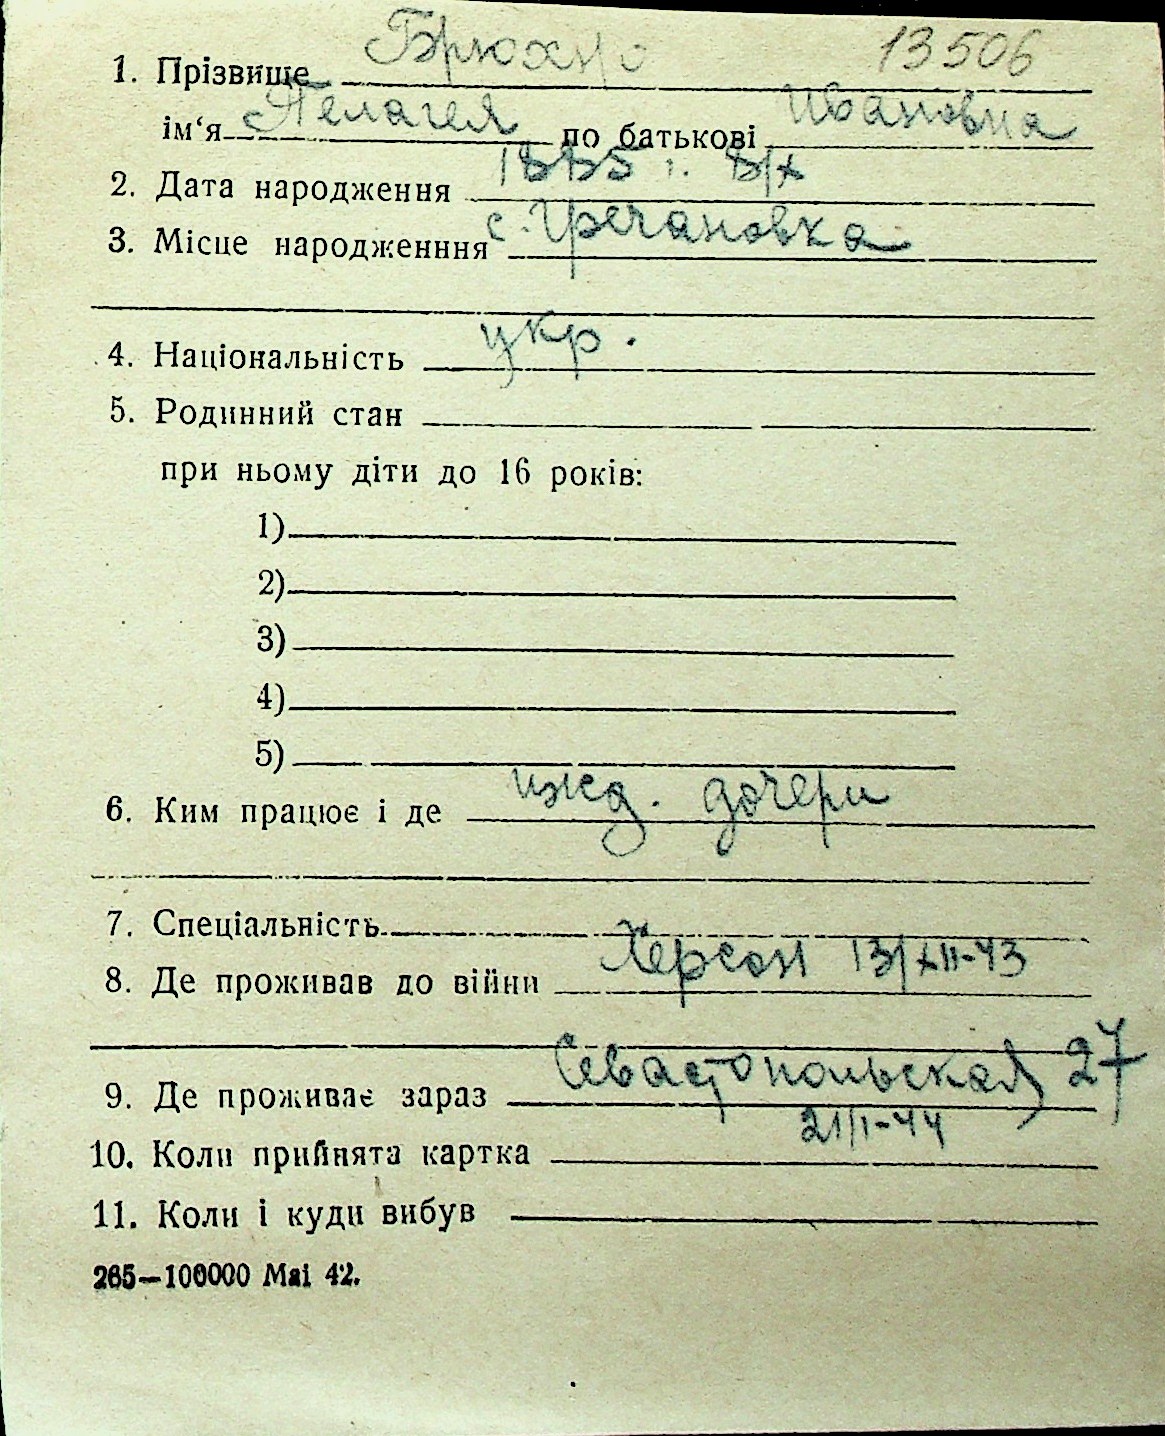 13506
1. Прізвище Брюхно
ім‘я Пелагея по батькові Ивановна
2. Дата народження 1885 г. 8/X
3. Місце народженння с. Гречановка
4. Національність укр.
5. Родинний стан
при ньому діти до 16 років:
1)
2)
3)
4)
5)
6. Ким працює і де ижд. дочери
7. Спеціальність
8. Де проживав до війни Херсон 13/XII-43
9. Де проживає зараз Севастопольская 27
21/I-44
10. Коли прийнята картка
11. Коли і куди вибув
265—100000 Mai 42.